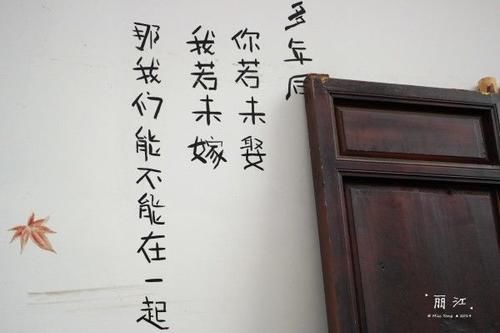 多年后
你若未娶
我若未嫁
那我们能不能在一起
丽江